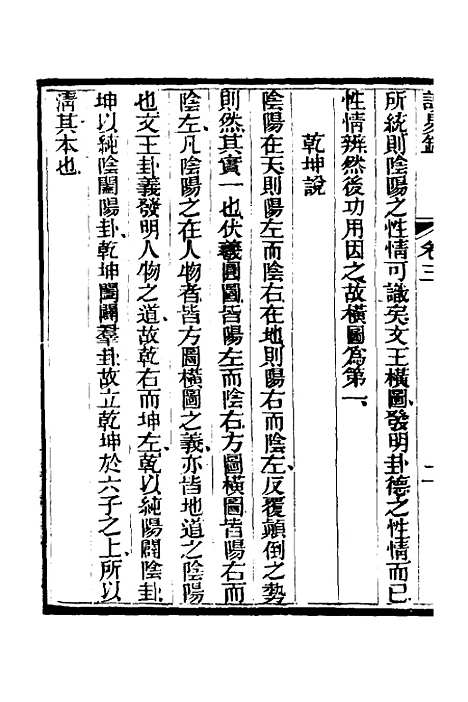 易
卷三
二
所統則陰陽之性情可識矣文王橫圖發明卦德之性情而已
性情辨然後功用因之故橫圖為第一
乾坤說
陰陽在天則陽左而陰右在地則陽右而陰左反覆顛倒之勢
則然其實一也伏羲圓圖皆陽左而陰右方圖橫圖皆陽右而
陰左凡陰陽之在人物者皆方圖橫圖之義亦皆地道之陰陽
也文王卦義發明人物之道故乾右而坤左乾以純陽闢陰卦
坤以純陰闔陽卦乾坤闔闢羣卦故立乾坤於六子之上所以
清其本也